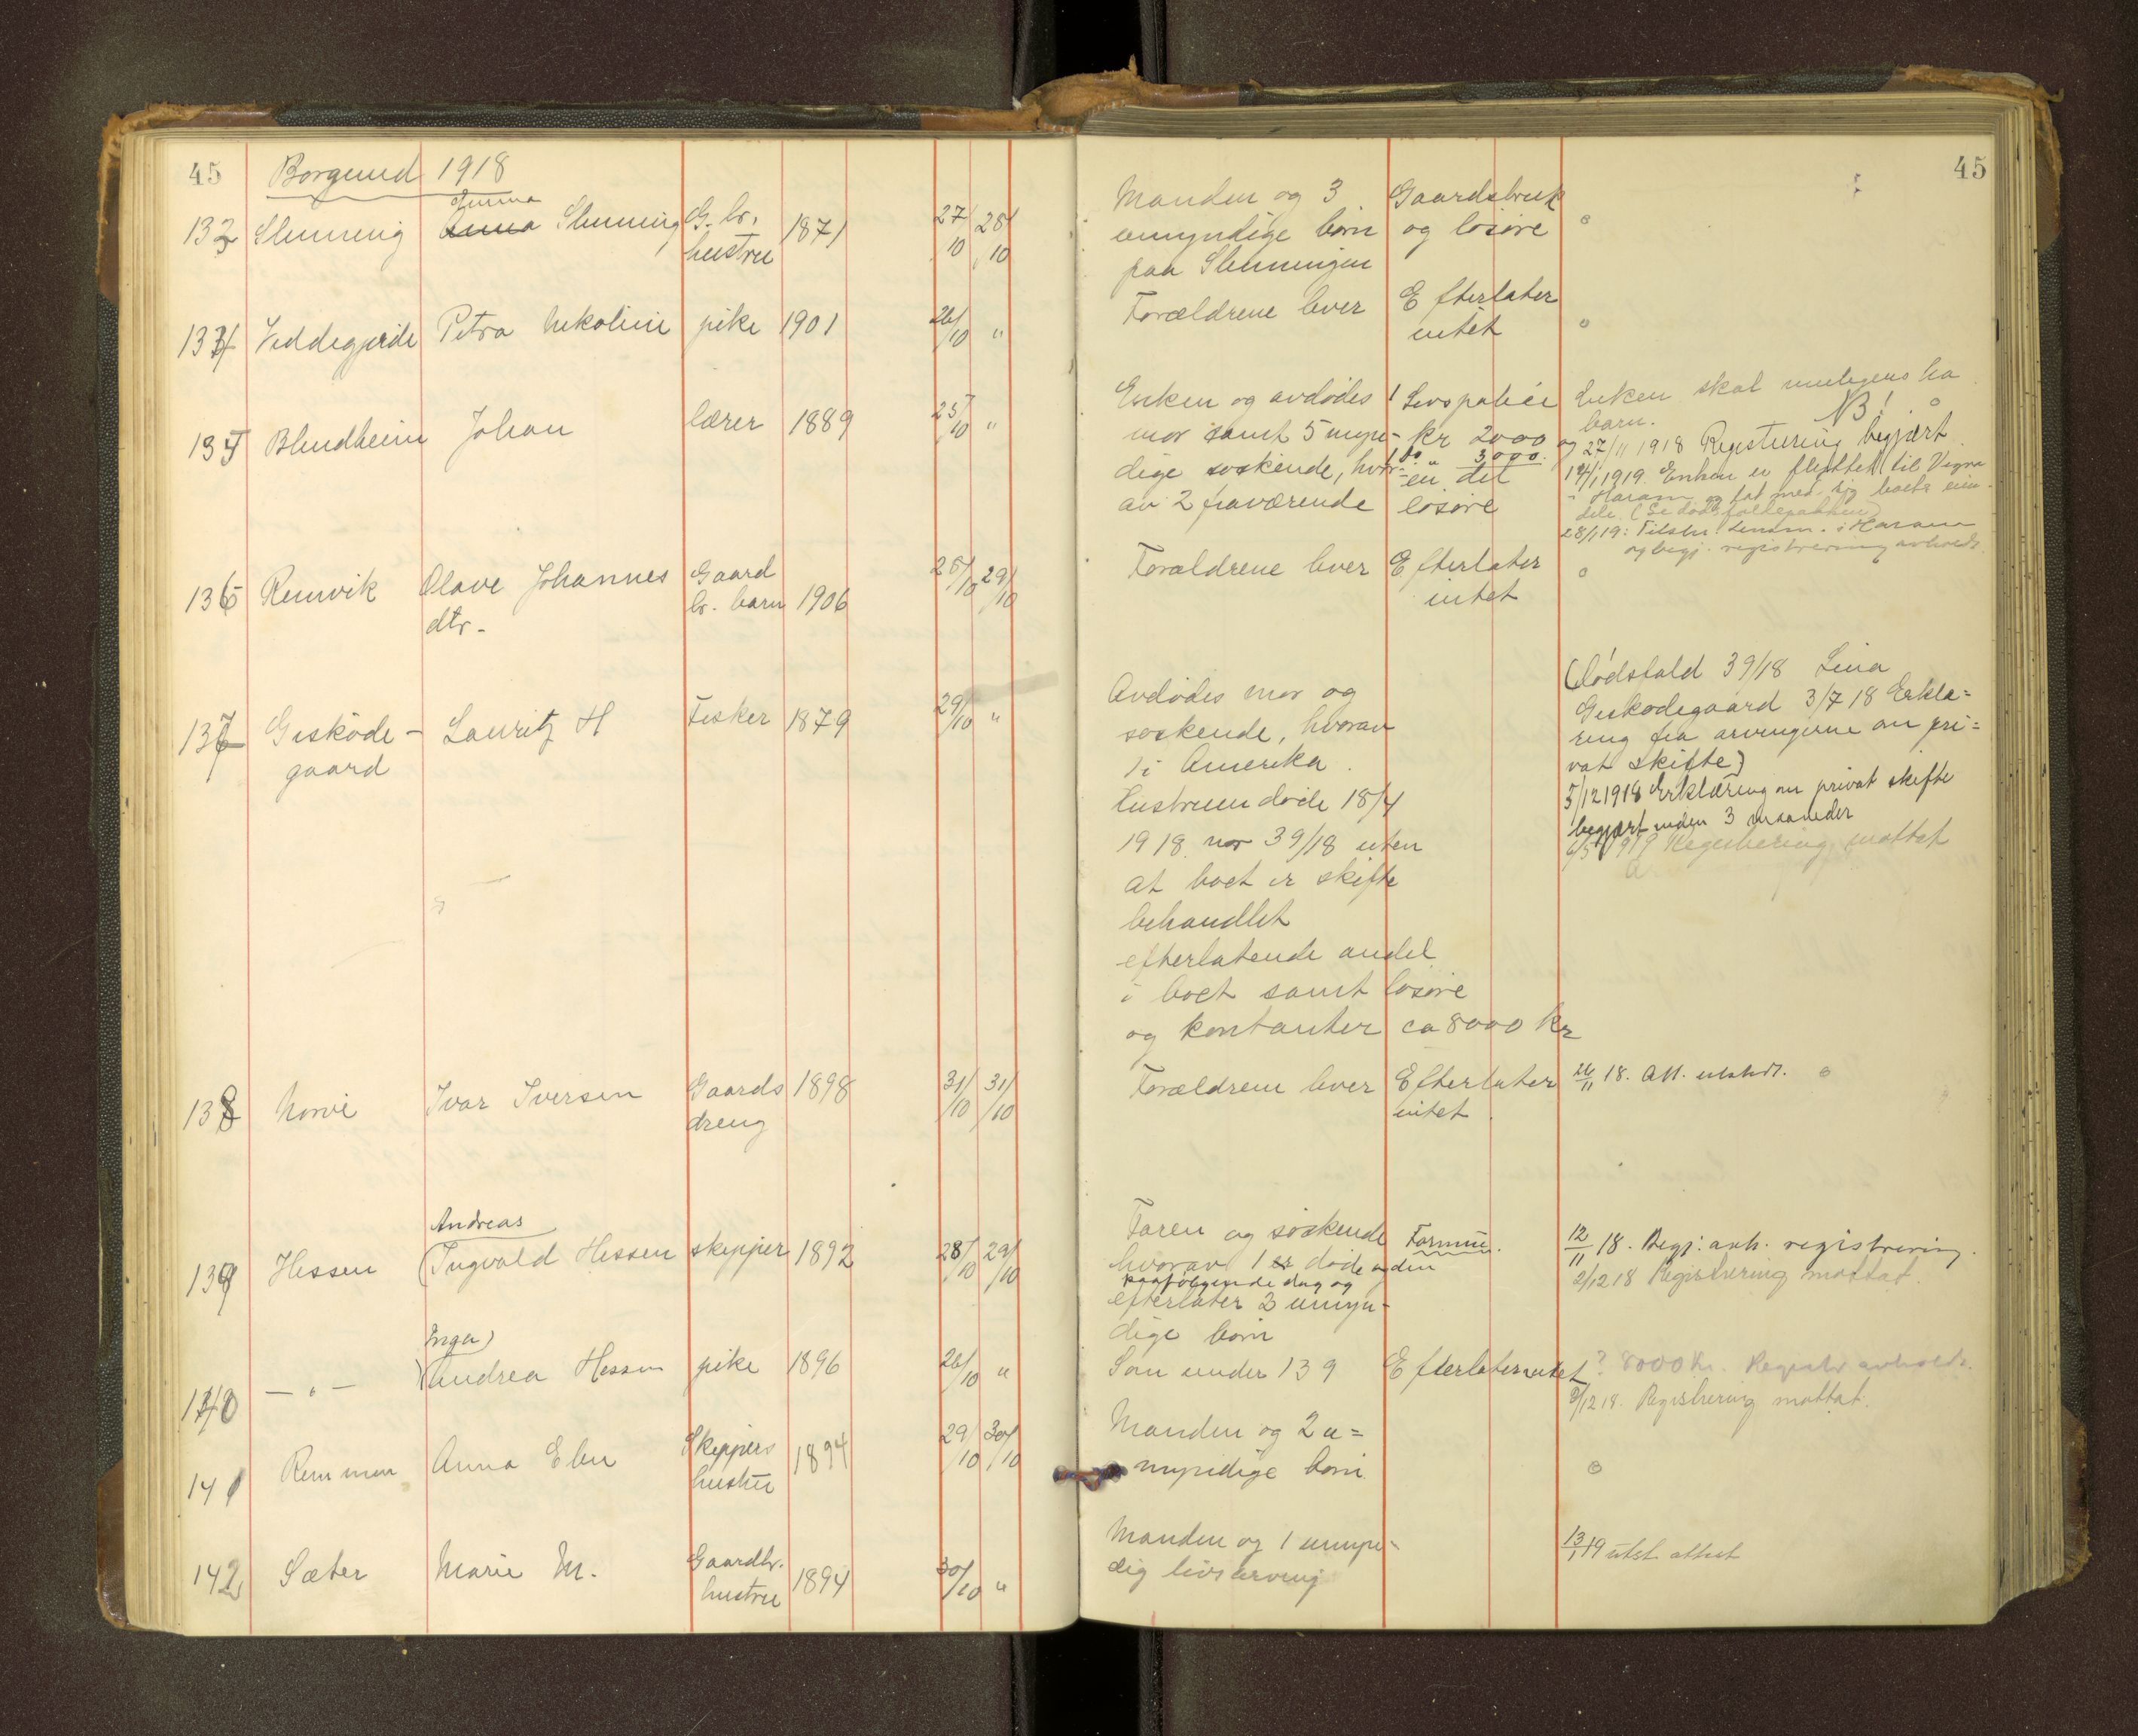 45
Borgund 1918
133 Slinning Emma Anna Slinning G. br. hustru 1871 27/10 28/10
134 Veddegjerde Petra Nikoline pike 1901 26/10 "
135 Blindheim Johan lærer 1889 25/10 "
136 Remvik Olave Johannes Gaard
dtr. br. barn 1906 28/10 29/10
137 Giskøde- Lauritz H Fisker 1879 29/10 "
gaard
138 Norvi Ivar Iversen Gaards 1898 31/10 31/10
dreng
Andreas
139 Hessen (Ingvald Hessen skipper 1892 28/10 29/10
Inga)
140 — " — Andrea Hessen pike 1896 26/10 "
141 Remmen Anna Elen Skippers
hustru 1894 29/10 30/10
142 Sæter Marie M. Gaardbr.
hustru 1894 30/10 "
45
Manden og 3 Gaardsbruk
umyndige børn og løsøre o
paa Slinningen
Forældrene lever Efterlater
intet o
Enken og avdødes 1 Livspolice Enken skal muligens ha
barn. NB! o
mor samt 5 myn- kr 2000 og 27/11 1918 Registrering begjært.
dige søskende, hvor- 1 do " 3000.
av 2 fraværende en del
løsøre
14/1 1919. Enken er flyttet til Vigra
i Haram og tat med sig boets eien-
dele. (Se dødsfaldspakken)
28/1 19: Tilskr. lensm. i Haram
og begj. registrering avholdt.
Forældrene lever Efterlater
intet o
Avdødes mor og
søskende, hvorav
1 i Amerika.
Hustruen døde 18/4
1918 nor 39/18 uten
at boet er skifte
behandlet
efterlatende andel
i boet samt løsøre
og kontanter ca 8000 kr
(Dødsfald 39/18 Lina
Giskødegaard 3/7 18 Erklæ=
ring fra arvingerne om pri=
vat skifte)
5/12 1918 Erklæring om privat skifte
begjært inden 3 maaneder
6/5 1919 Registrering mottat
Forældrene lever Efterlater 26/11 18. Att. utstedt. o
intet.
Faren og søskende Formue. 12/11 18. Begj. avh. registrering.
hvorav 1 er døde den
paafølgende dag og
efterlater 3 umyn-
dige børn
2/12 18 Registrering mottat.
Som under 139 Efterlater intet ? 8000 kr. Registr avholdt.
2/12 18. Registrering mottat.
Manden og 2 u=
myndige børn. o
Manden og 1 umyn-
dig livsarving
13/1 19 utst attest